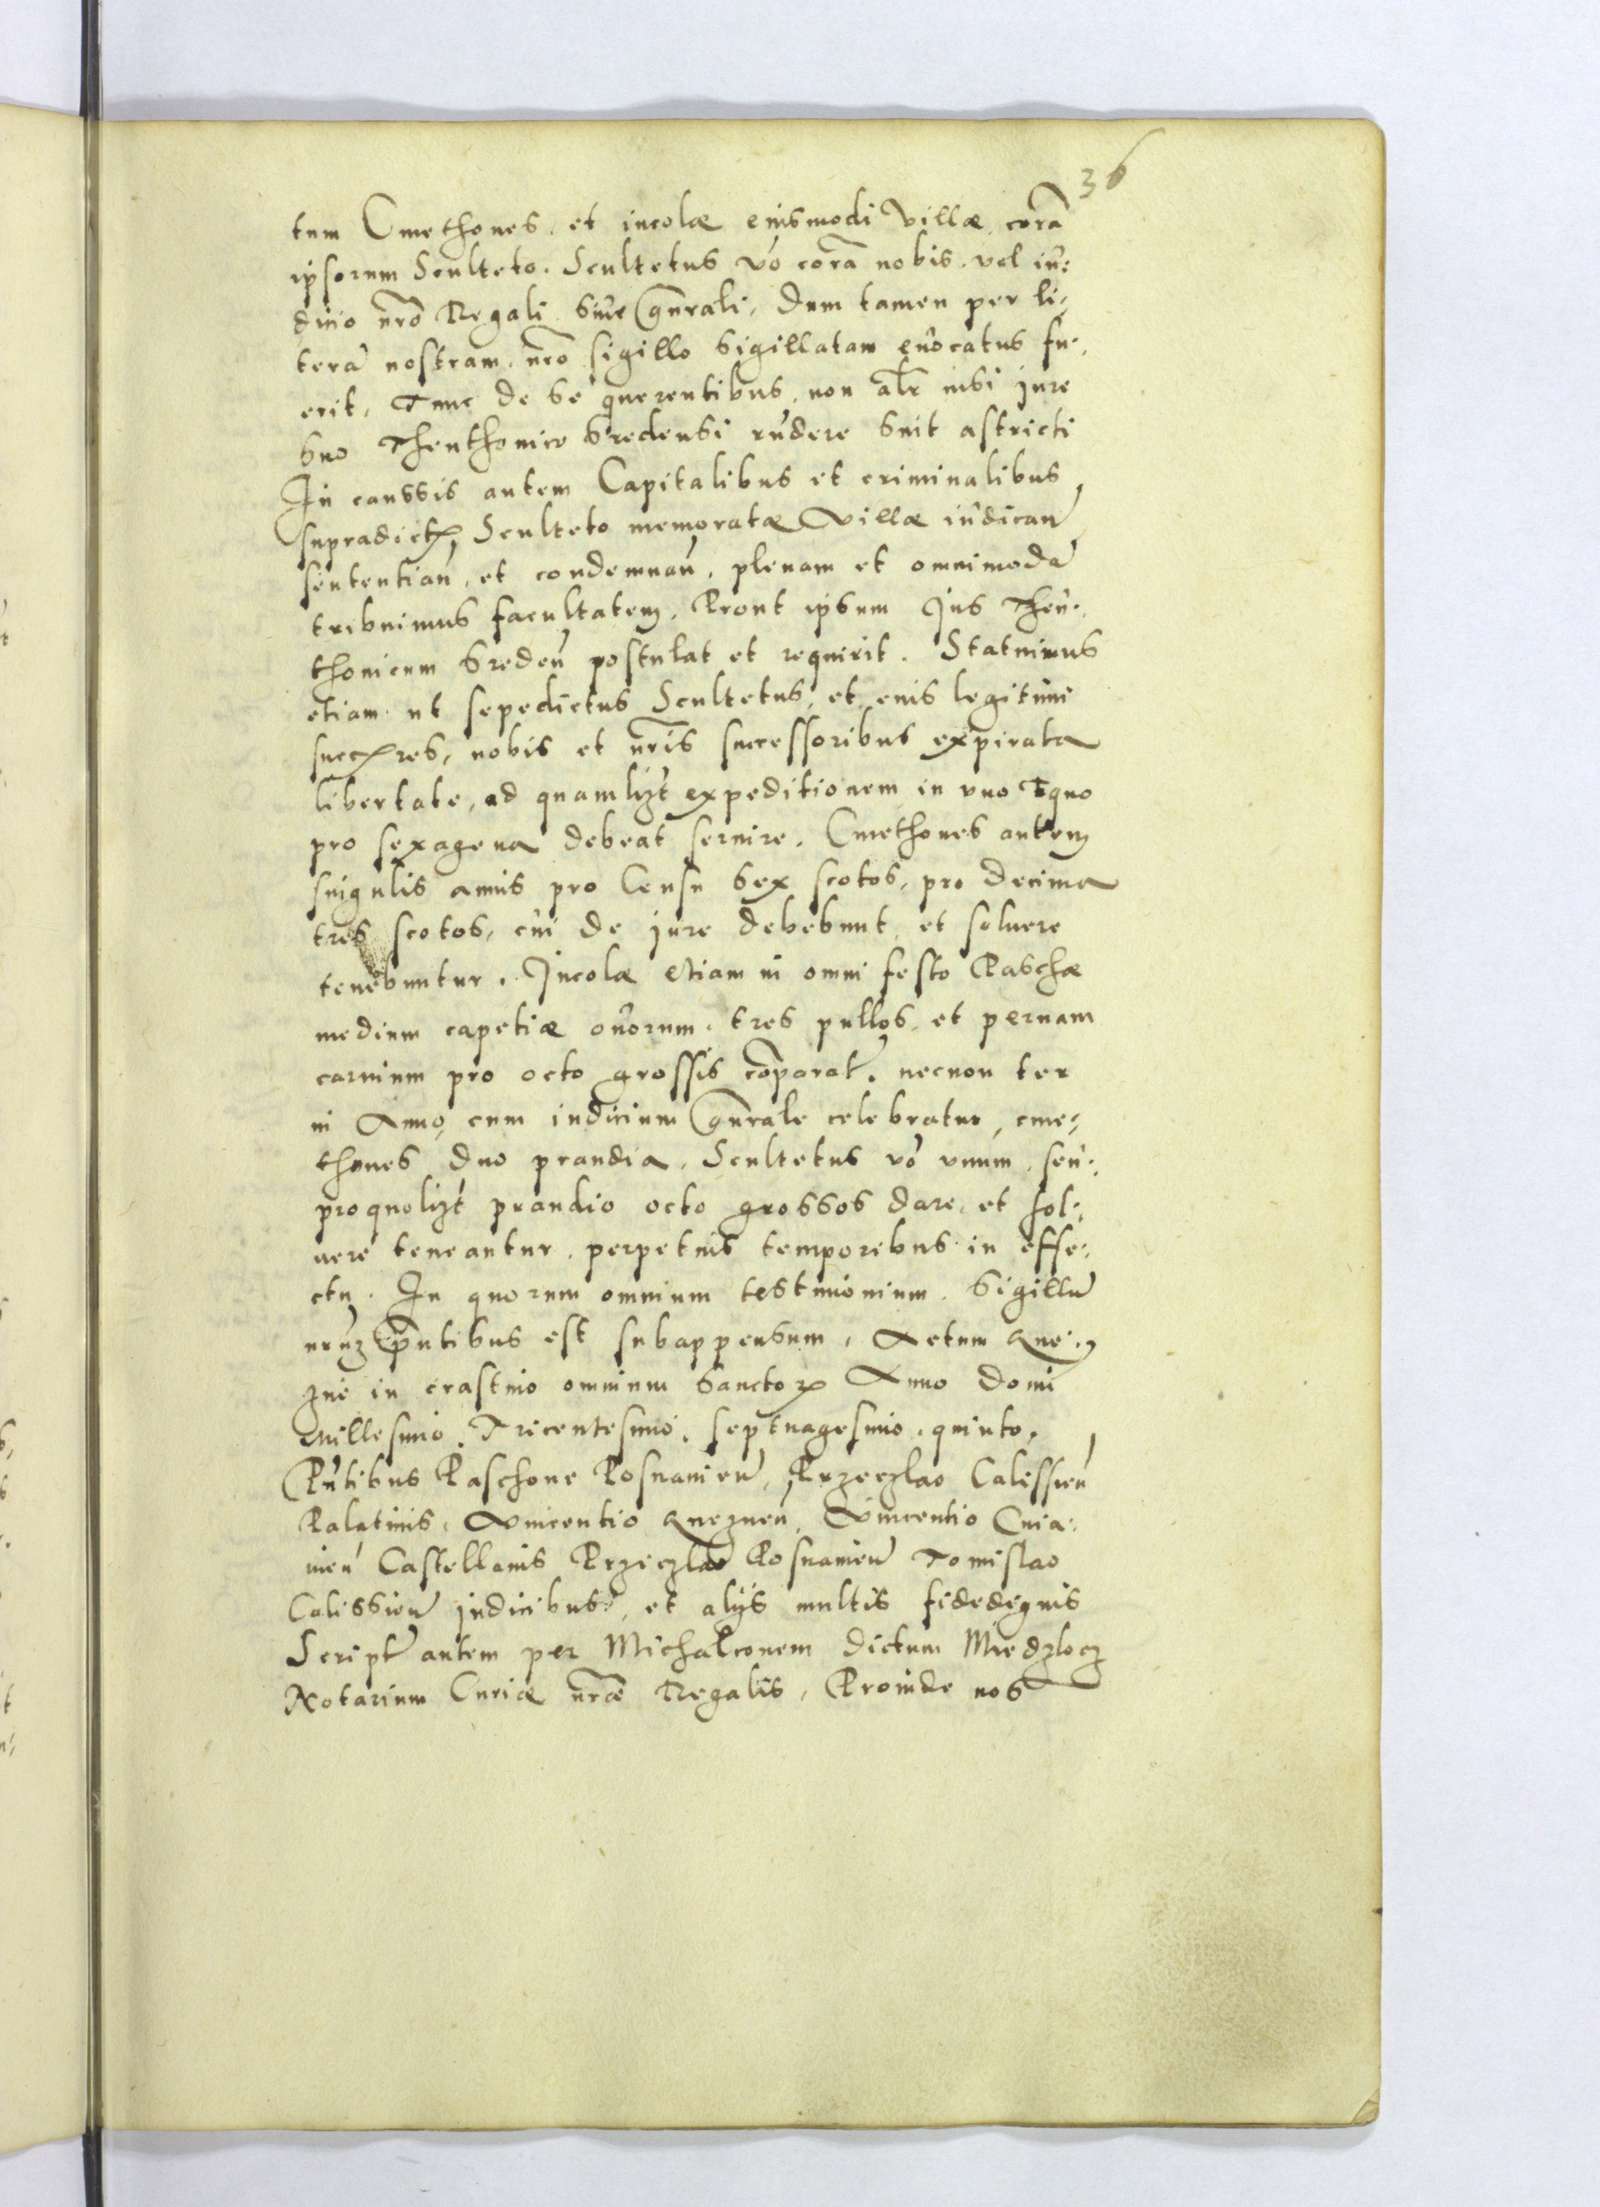 36
tum Cmethones, et incolæ eiusmodi Villæ, corā
ipsorum Sculteto. Scultetus vō corā nobis, vel iu:
dicio nr̄o Regali siue gn̄rali, dum tamen per li:
terā nostram, nr̄o sigillo sigillatam euocatus fu:
erit, Tunc de se querentibus, non al̄r nisi jure
suo Theuthonico Sredensi rn̄dere sint astricti
In caussis autem Capitalibus et criminalibus,
supradicto, Sculteto memoratæ Villæ iudican̄
sententian̄, et condemnan̄, plenam et omnimodā
tribuimus facultatem, Prout ipsum Jus Theu:
thonicum Sreden̄ postulat et requirit. Statuimus
etiam ut sepedictus Scultetus, et eius legitimi
succ̄res, nobis et nr̄is successoribus expirata
libertate, ad quamlizt expeditionem in vno Equo
pro sexagena debeat seruire. Cmethones autem
singulis annis pro Censu sex scotos, pro decima
tres scotos, cui de jure debebunt, et soluere
tenebuntur. Incolæ etiam in omni festo Paschæ
medium capetiæ ouorum, tres pullos, et pernam
carnium pro octo grossis cōparat̄, necnon ter
in Anno, cum iudicium gn̄rale celebratur, cme:
thones duo prandia, Scultetus vō vnum, seu:
proquolizt prandio octo grossos dare, et sol:
uere teneantur, perpetuis temporibus in effe:
ctu. In quorum omnium testimonium, Sigillū
nr̄uz pn̄tibus est subappensum, Actum Gne:
zne in crastino omnium Sanctorꝝ Anno domī
Millesimo, Tricentesimo, septuagesimo, quinto,
Pn̄tibus Paschone Posnanien̄, Przeczlao Calissien̄
Palatinis, Vincentio Gneznen̄, Vincentio Cuia:
uien̄ Castellanis Przeczlao Posnanien̄ Tomislao
Calissien̄ judicibus, et alijs multis fidedignis
Script̄ autem per Michalconem dictum Miedzlocz
Notarium Curiæ nr̄æ Regalis, Proinde nos